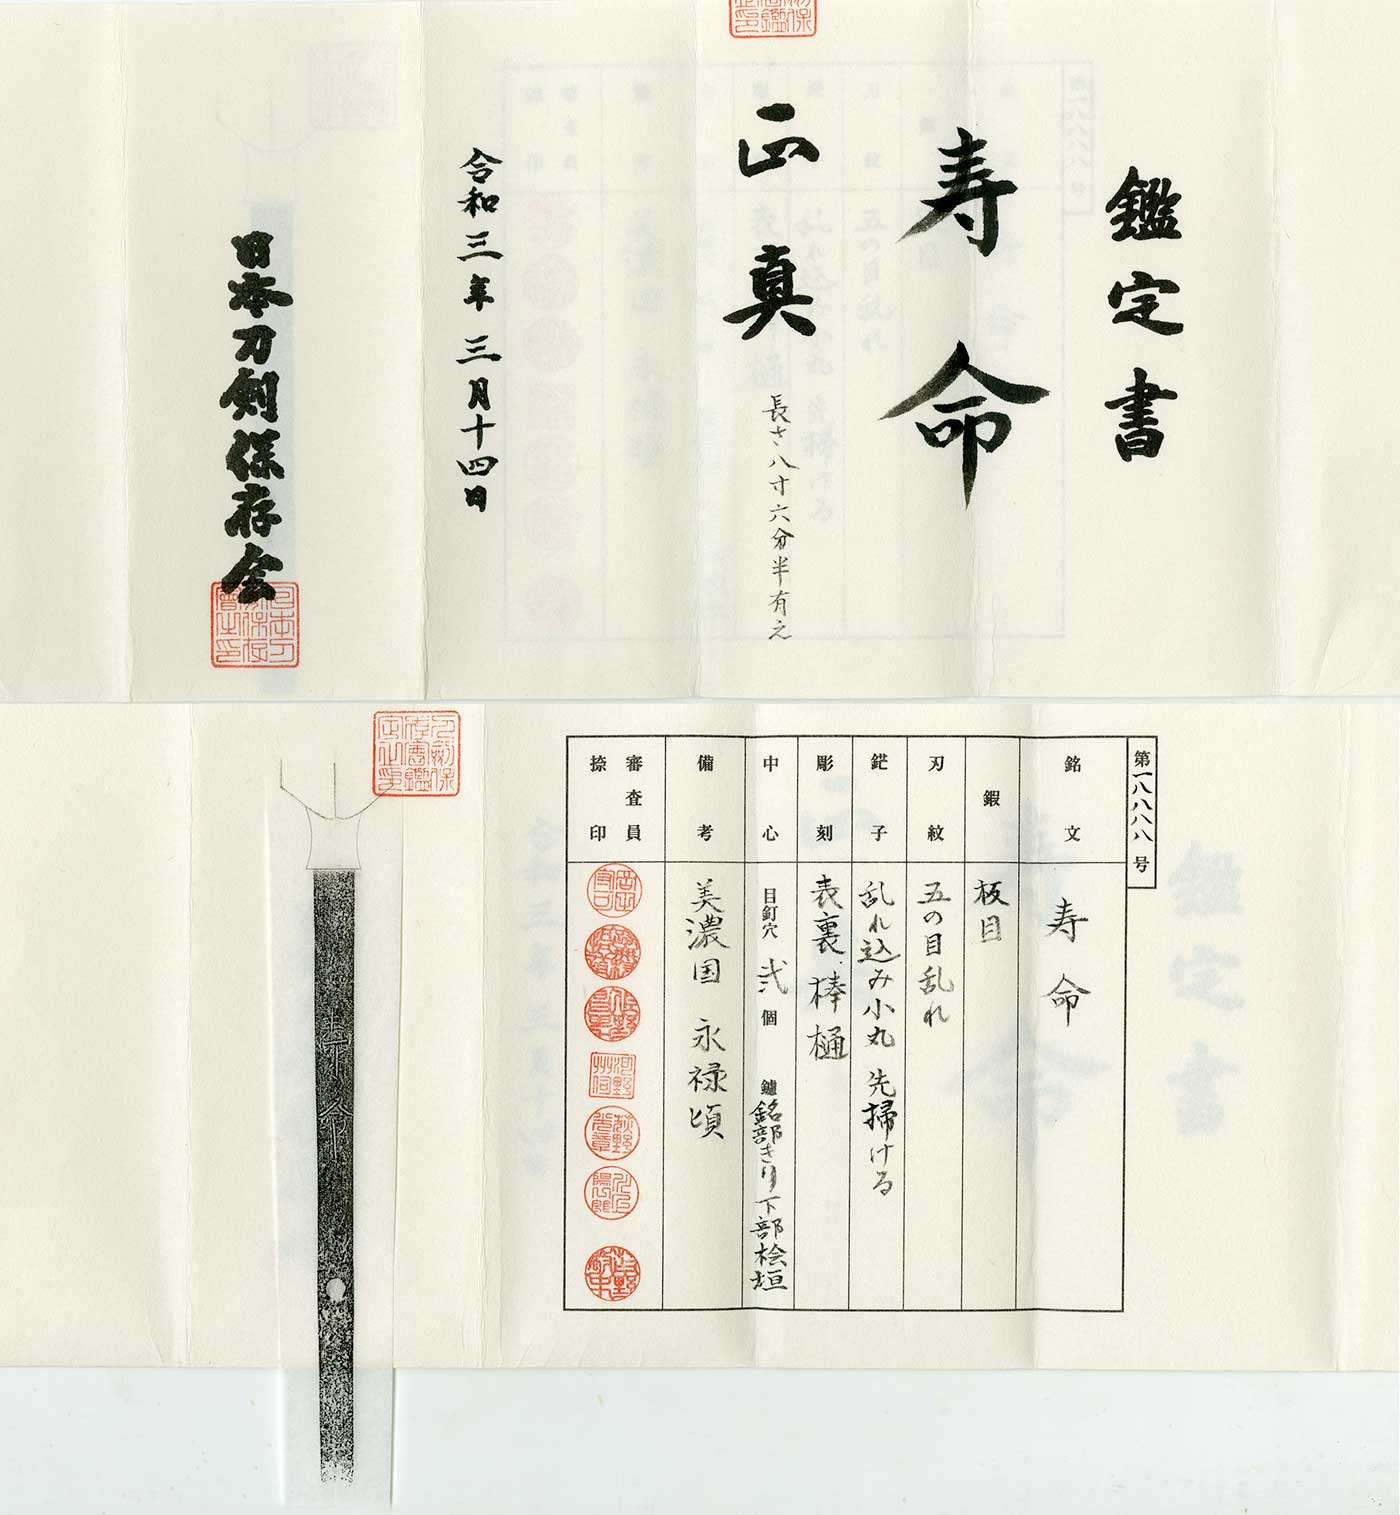 鑑定書
寿命
正真
長さ八寸六分半有之
令和三年三月十四日
日本刀剣保存会
第一八八八八号
銘文
寿命
鍜
板目
刃紋
五の目乱れ
鋩子
乱れ込み小丸 先掃ける
彫刻
表裏棒樋
中心
目釘穴 弐 個
鑢 銘部きり下部桧垣
備考
美濃国 永禄頃
審査員
捺印
寿命